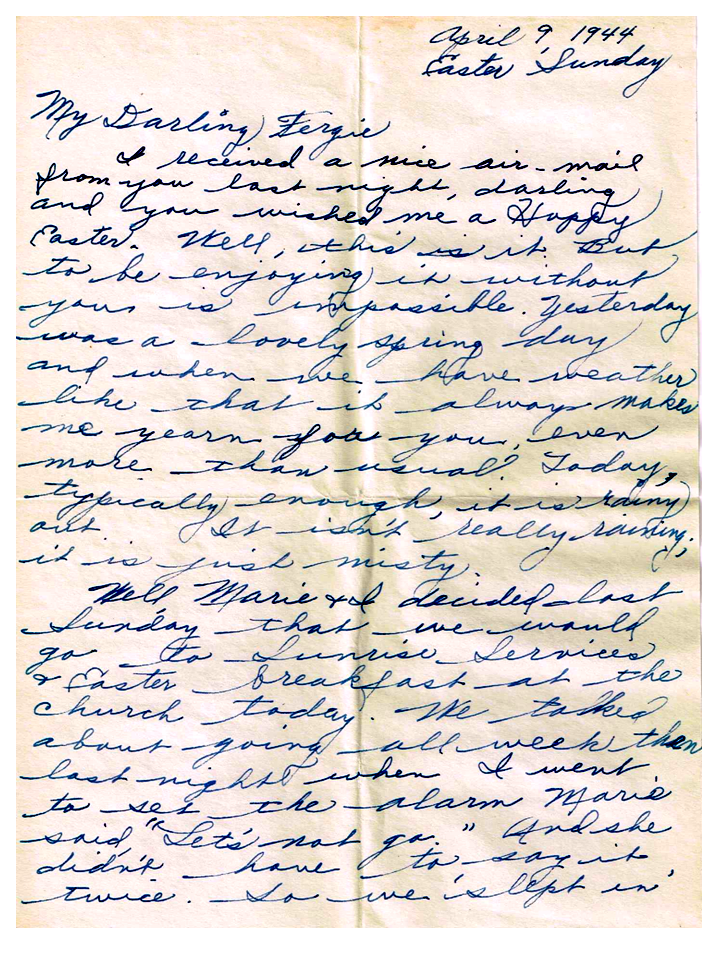 April 9, 1944
Easter Sunday
My Darling Fergie
I received a nice air-mail
from you last night, darling
and you wished me a Happy
Easter. Well, this is it. But
to be enjoying it without
you is impossible. Yesterday
was a lovely spring day
and when we have weather
like that it always makes
me yearn for you, even
more than usual. Today,
typically enough, it is rainy
out. It isn't really raining,
it is just misty.
Well Marie & I decided last
Sunday that we would
go to Sunrise Services
& Easter breakfast at the
church today. We talked
about going all week then
last night when I went
to set the alarm Marie
said, "Let's not go." And she
didn't have to say it
twice. So we 'slept in'